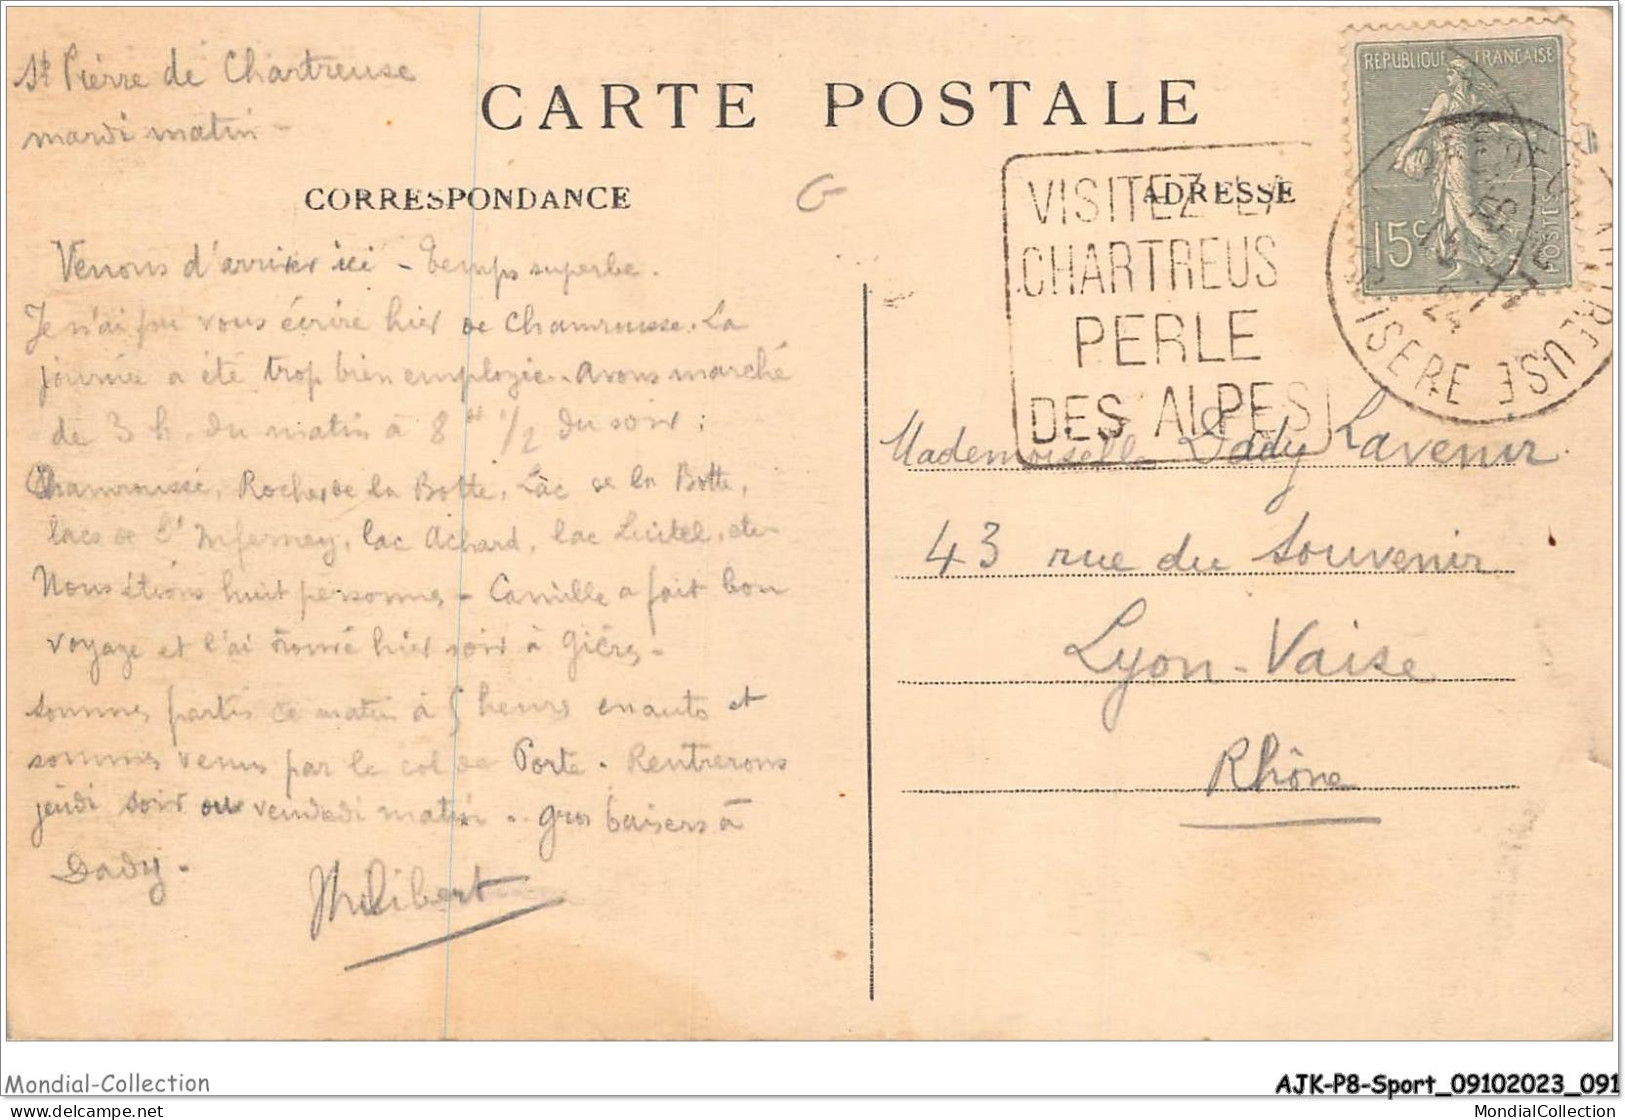 St Pierre de Chartreuse
mardi matin -
CARTE POSTALE
CORRESPONDANCE
G
ADRESSE
VISITEZ LA
CHARTREUS
PERLE
DES ALPES
REPUBLIQUE FRANÇAISE
15c
POSTES
CHARTREUSE
ISERE
24
Venons d'arriver ici - Temps superbe.
Je n'ai pu vous écrire hier de Chamrousse. La
journée a été trop bien employée. avons marché
de 3 h. du matin à 8 H 1/2 du soir :
Chamrousse, Rocher de la Botte, Lac de la Botte,
lacs de l'Inferney, lac Achard, lac Luitel, etc
Nous étions huit personnes - Camille a fait bon
voyage et l'ai trouvé hier soir à Gières -
sommes partis ce matin à 5 heures en auto et
sommes venus par le col de Porte. Rentrerons
jeudi soir ou vendredi matin. gros baisers à
Dady.
Philibert
Mademoiselle Dady Lavenir
43 rue du Souvenir
Lyon-Vaise
Rhône
Mondial-Collection
AJK-P8-Sport_09102023_091
www.mondialcollection.com
MondialCollection